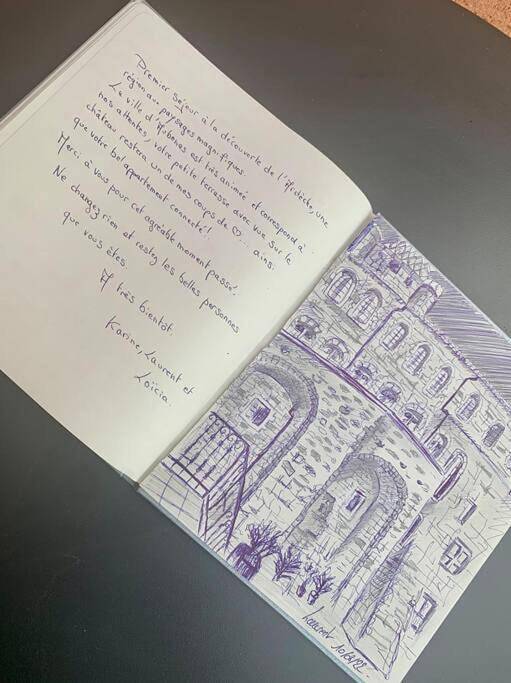 Premier séjour à la découverte de l'Ardèche, une
région aux paysages magnifiques.
La ville d'Aubenas est très animée et correspond à
nos attentes, votre petite terrasse avec vue sur le
château restera un de mes coups de ♡... ainsi
que votre bel appartement connecté!
Merci à vous pour cet agréable moment passé.
Ne changez rien et restez les belles personnes
que vous êtes.
A très bientôt.
Karine, Laurent et
Loïcia.
Laurent